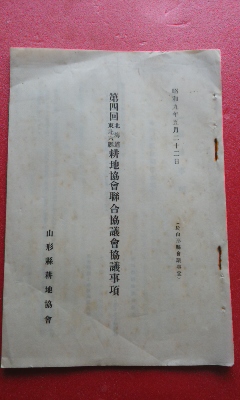 昭和九年五月二十二日
(於山形縣會議事堂)
第四回北海道東北六縣耕地協會聯合協議會協議事項
山形縣耕地協會